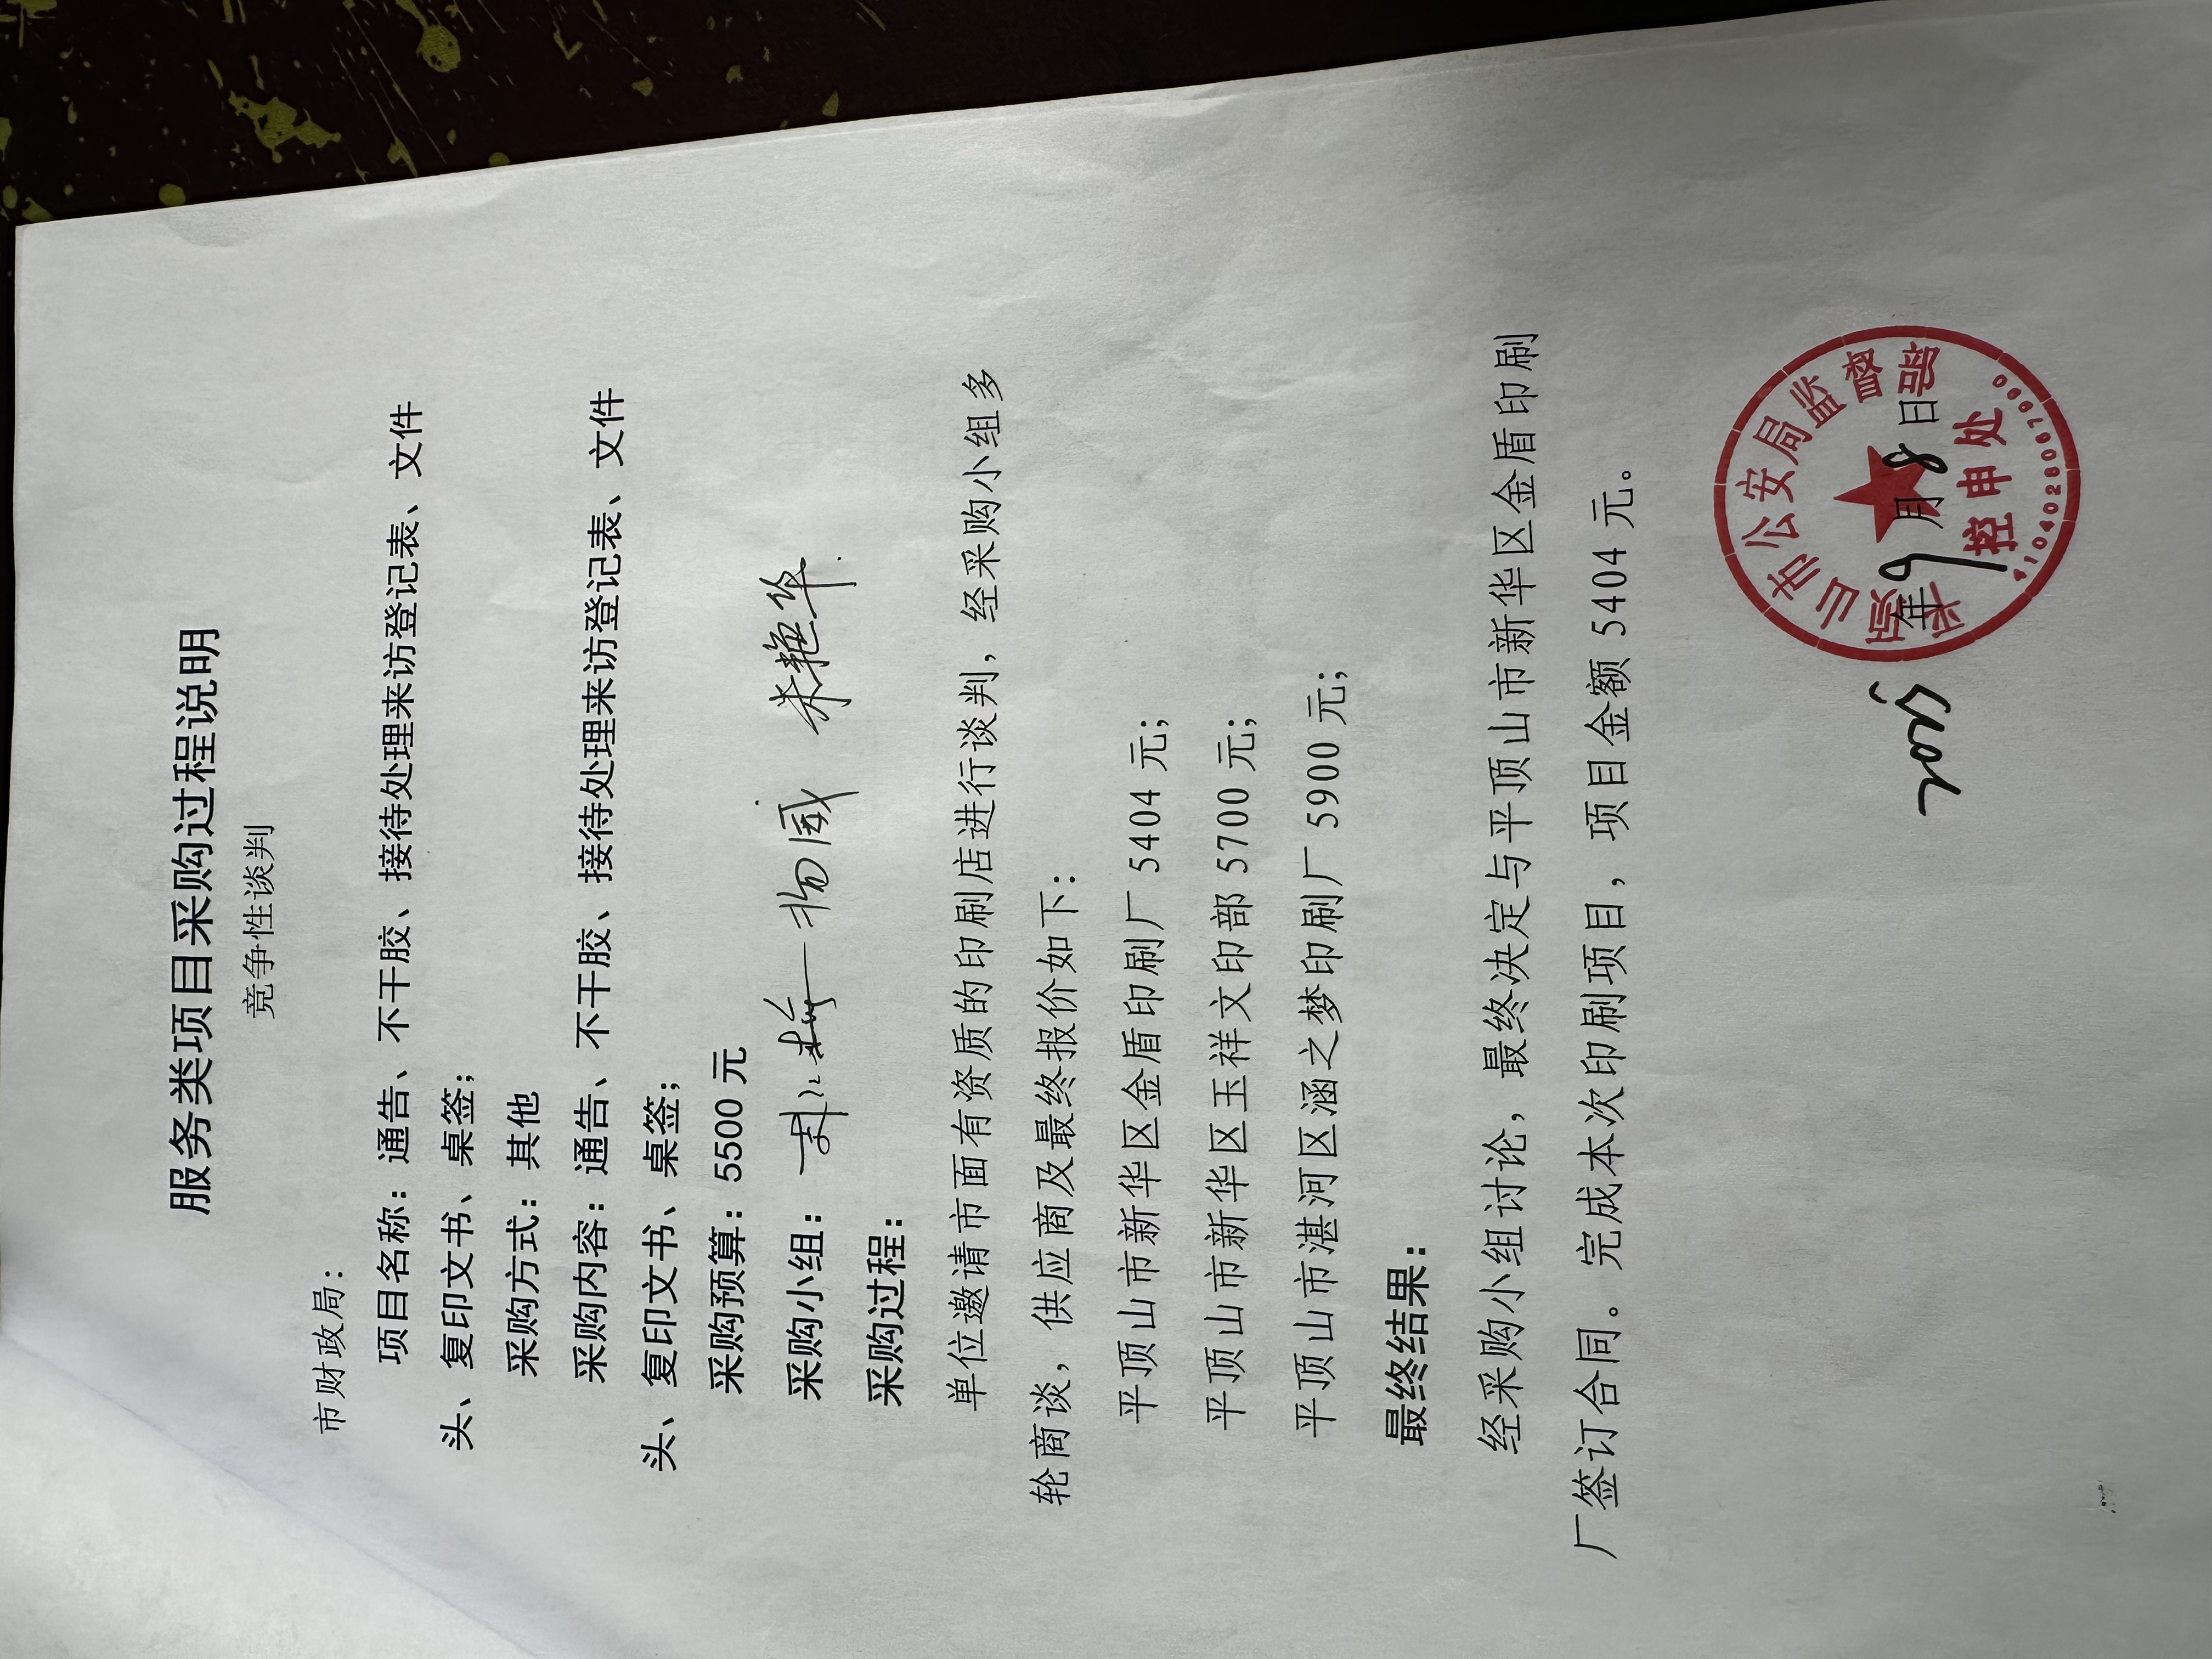 服务类项目采购过程说明
竞争性谈判
市财政局：
项目名称：通告、不干胶、接待处理来访登记表、文件
头、复印文书、桌签；
采购方式：其他
采购内容：通告、不干胶、接待处理来访登记表、文件
头、复印文书、桌签；
采购预算：5500 元
采购小组： 杨威 朱艳华
采购过程：
单位邀请市面有资质的印刷店进行谈判，经采购小组多
轮商谈，供应商及最终报价如下：
平顶山市新华区金盾印刷厂 5404 元；
平顶山市新华区玉祥文印部 5700 元；
平顶山市湛河区涵之梦印刷厂 5900 元；
最终结果：
经采购小组讨论，最终决定与平顶山市新华区金盾印刷
厂签订合同。完成本次印刷项目，项目金额 5404 元。
年 9 月 8 日
平顶山市公安局监督部
控申处